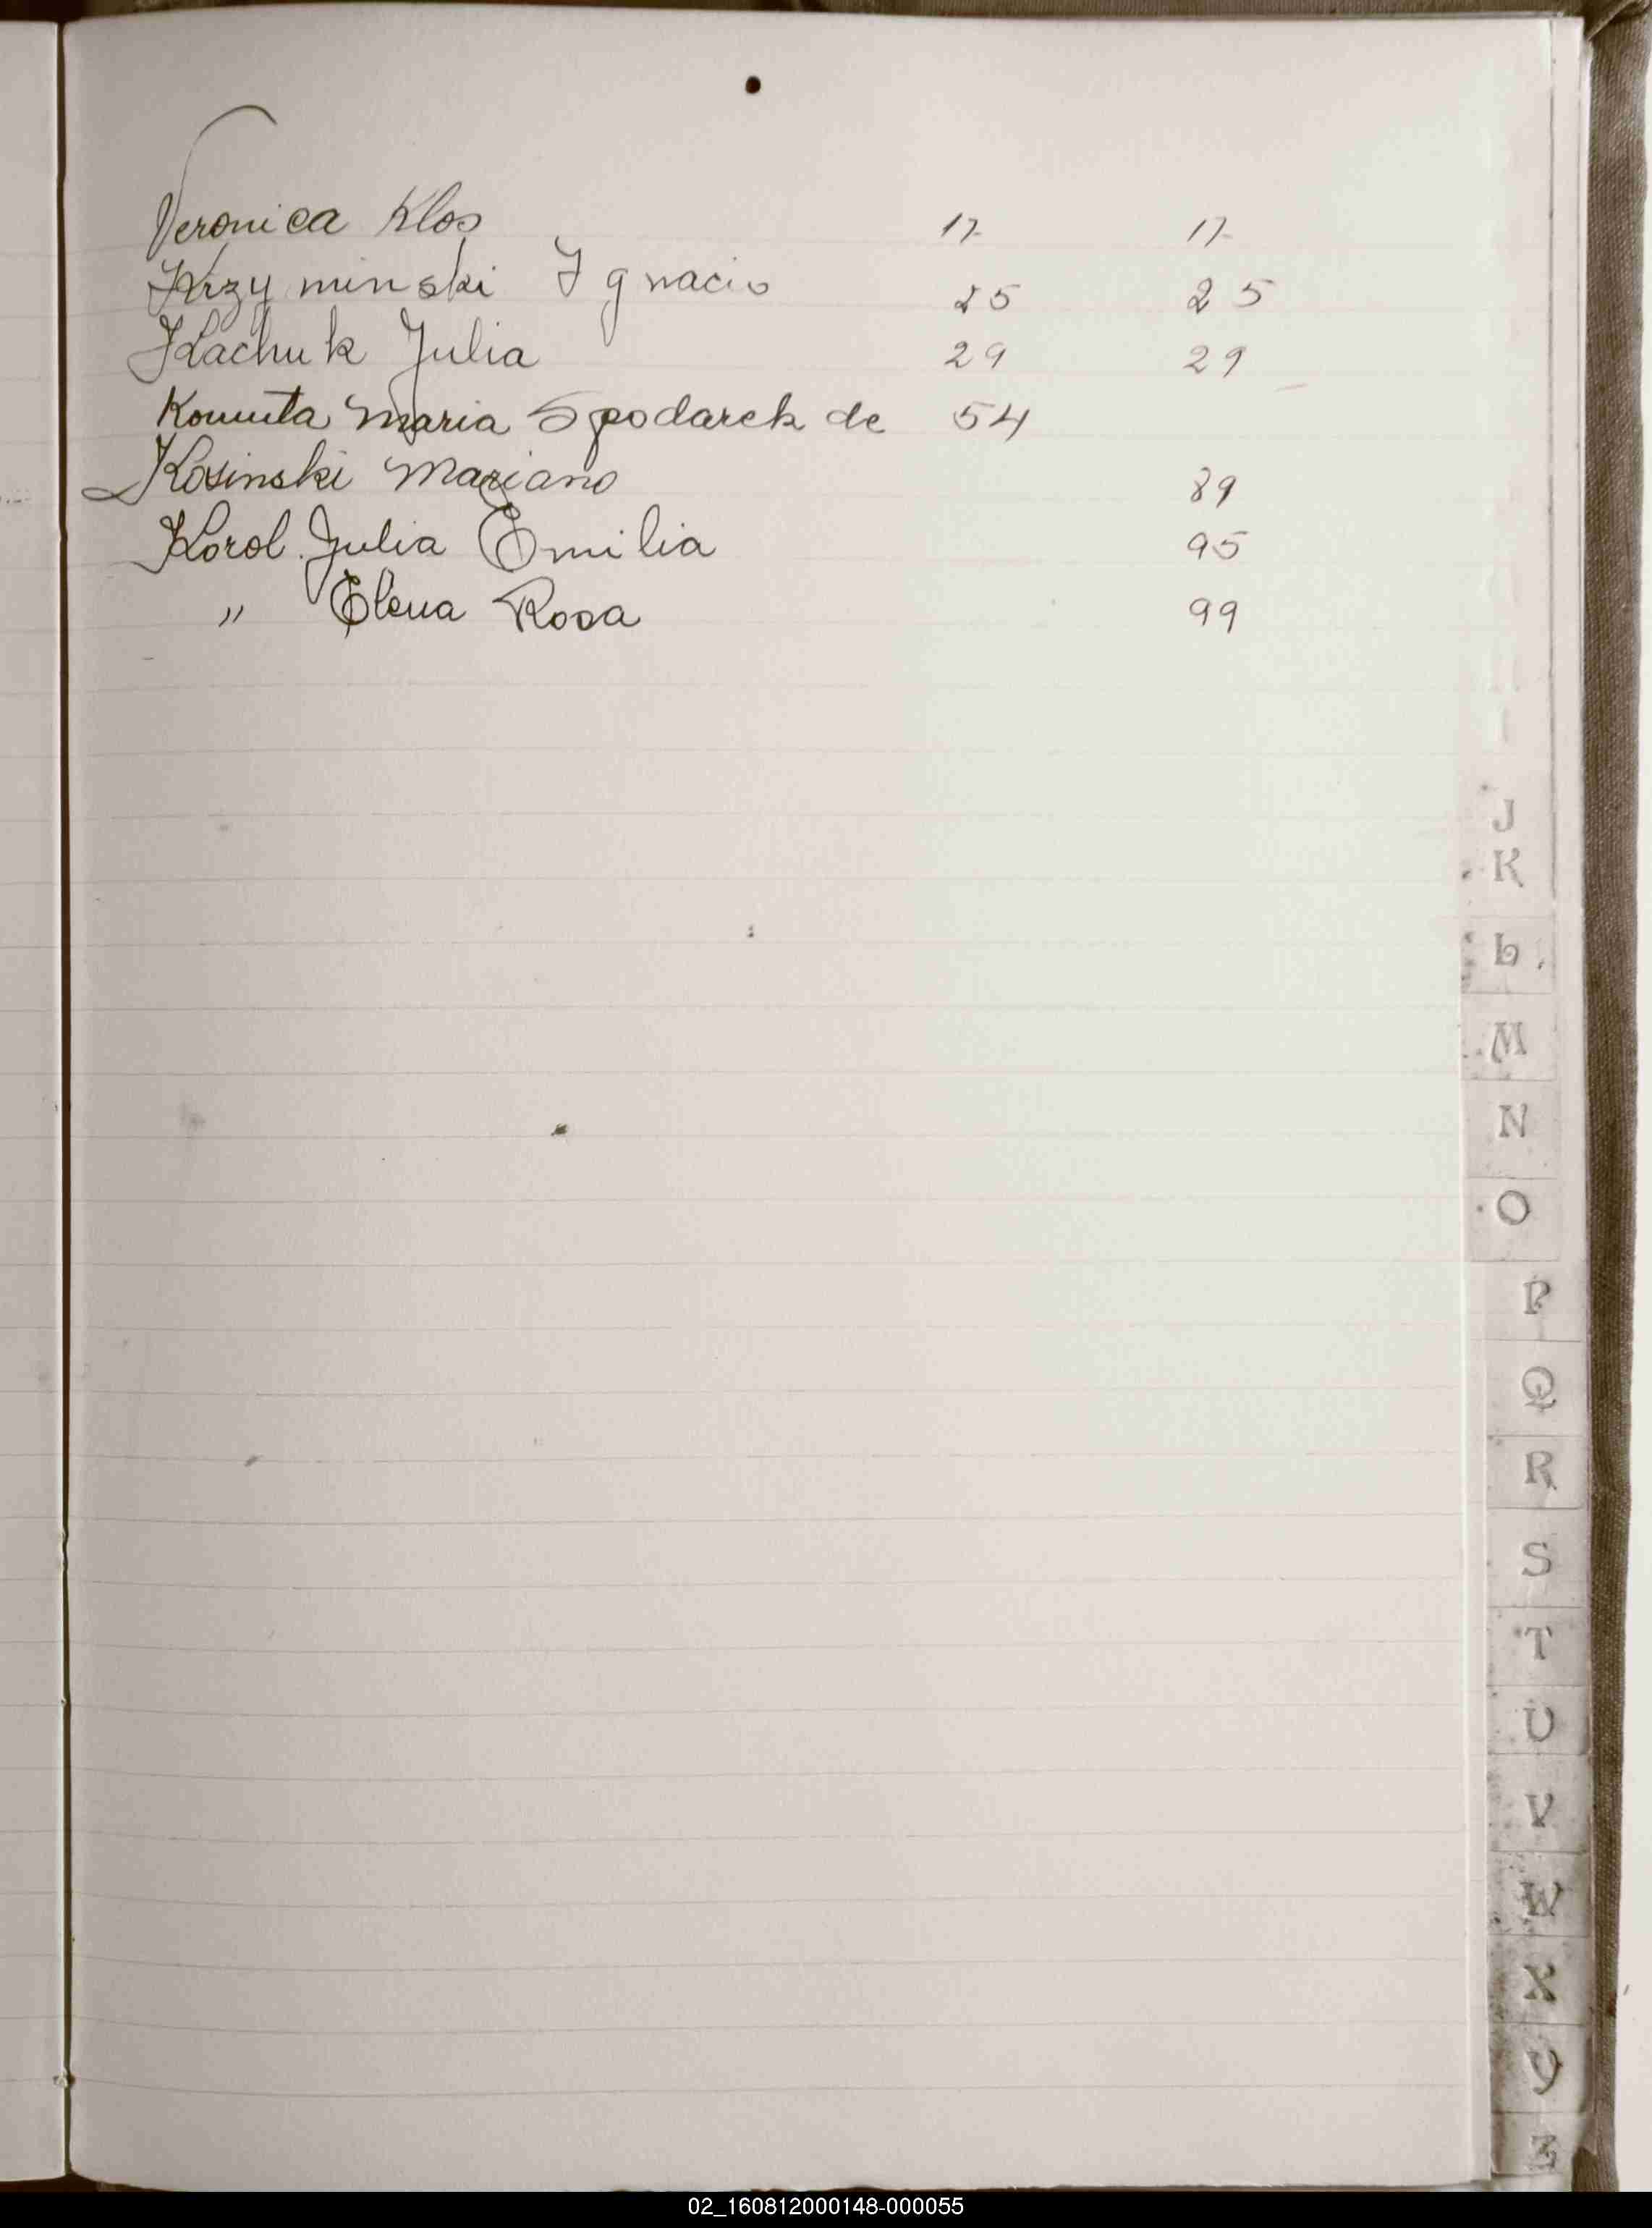 Veronica Klos 17 17
Krzyminski Ignacio 25 25
Kachuk Julia 29 29
Maria Spodarek de 54
Kosinski Mariano 89
Korol Julia Emilia 95
" Elena Rosa 99
J
K
L
M
N
O
P
Q
R
S
T
U
V
W
X
Y
Z
02_160812000148-000055